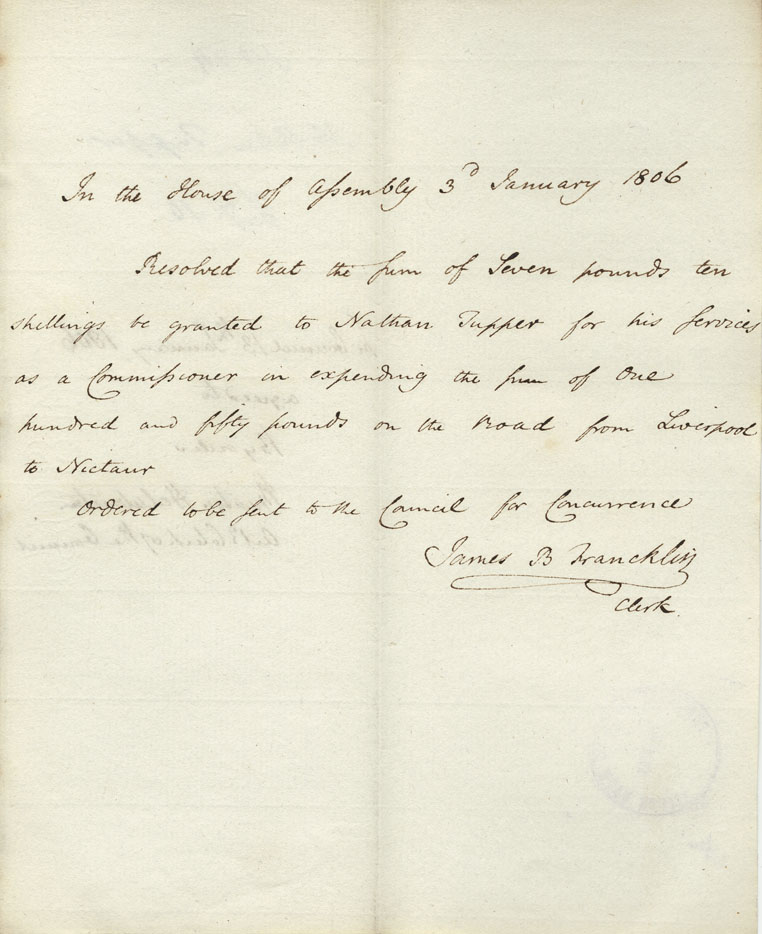 In the House of Assembly 3d January 1806
Resolved that the sum of Seven pounds ten
shillings be granted to Nathan Tupper for his Services
as a Commissioner in expending the sum of One
hundred and fifty pounds on the Road from Liverpool
to Nictaux
Ordered to be sent to the Council for Concurrence
James B Francklin
Clerk.